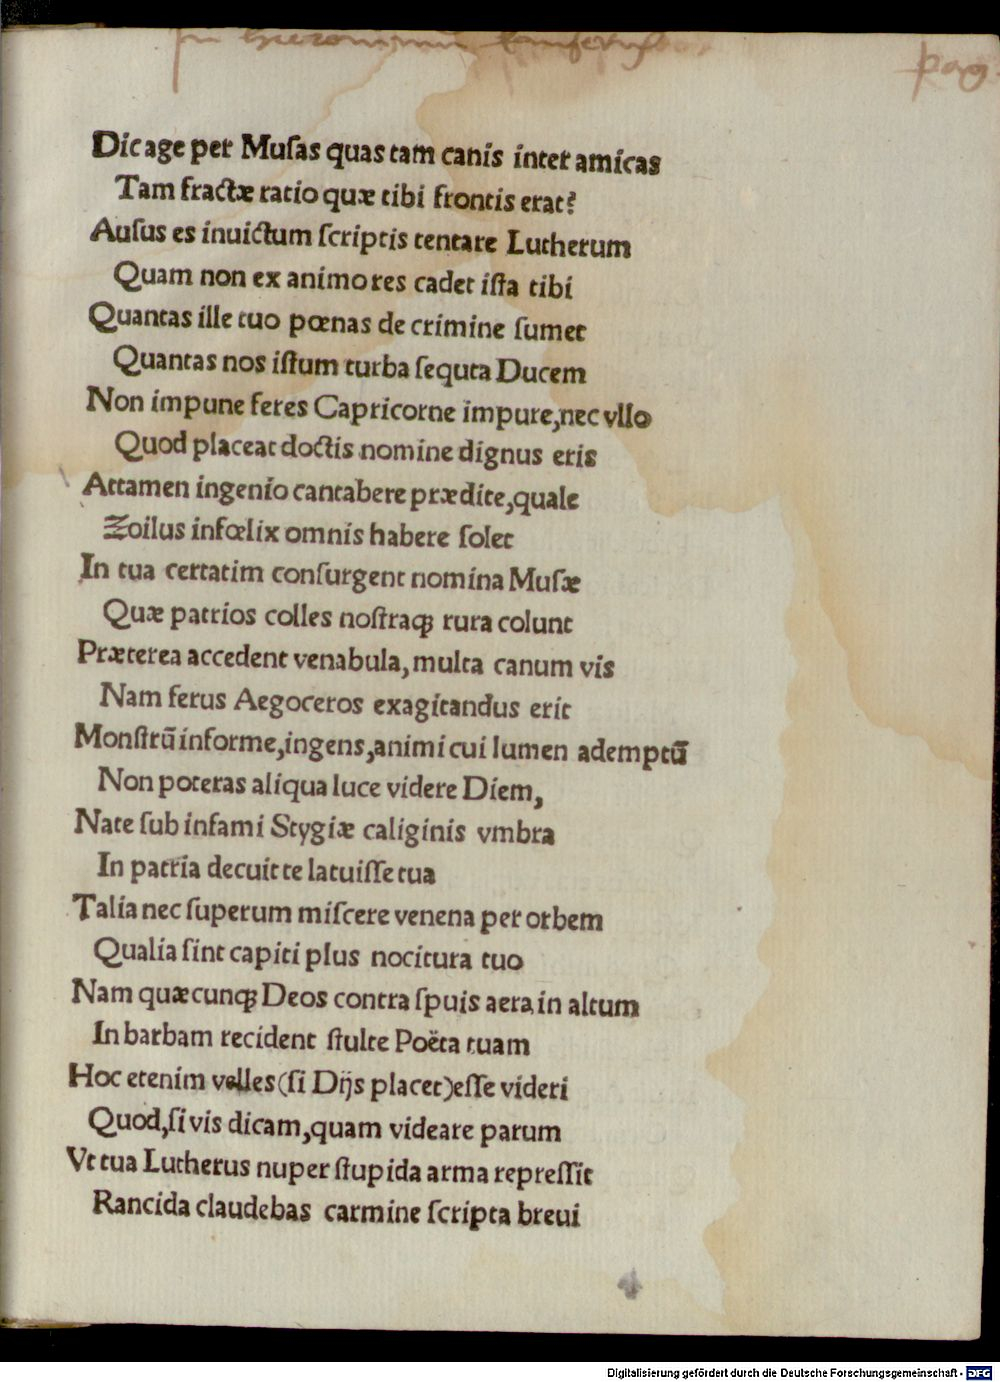 In hieronimum Emserum
pag.
Dic age per Muſas quas tam canis inter amicas
Tam fractæ ratio quæ tibi frontis erat?
Auſus es inuictum ſcriptis tentare Lutherum
Quam non ex animo res cadet iſta tibi
Quantas ille tuo pœnas de crimine ſumet
Quantas nos iſtum turba ſequta Ducem
Non impune feres Capricorne impure, nec vllo
Quod placeat doctis nomine dignus eris
Attamen ingenio cantabere prædite, quale
Zoilus infœlix omnis habere ſolet
In tua certatim conſurgent nomina Muſæ
Quæ patrios colles noſtraqꝫ rura colunt
Præterea accedent venabula, multa canum vis
Nam ferus Aegoceros exagitandus erit
Monſtrū informe, ingens, animi cui lumen ademptū
Non poteras aliqua luce videre Diem,
Nate ſub infami Stygiæ caliginis vmbra
In patria decuit te latuiſſe tua
Talia nec ſuperum miſcere venena per orbem
Qualia ſint capiti plus nocitura tuo
Nam quæcunqꝫ Deos contra ſpuis aera in altum
In barbam recident ſtulte Poëta tuam
Hoc etenim velles (ſi Dijs placet) eſſe videri
Quod, ſi vis dicam, quam videare parum
Vt tua Lutherus nuper ſtupida arma repreſſit
Rancida claudebas carmine ſcripta breui
Digitalisierung gefördert durch die Deutsche Forschungsgemeinschaft - DFG